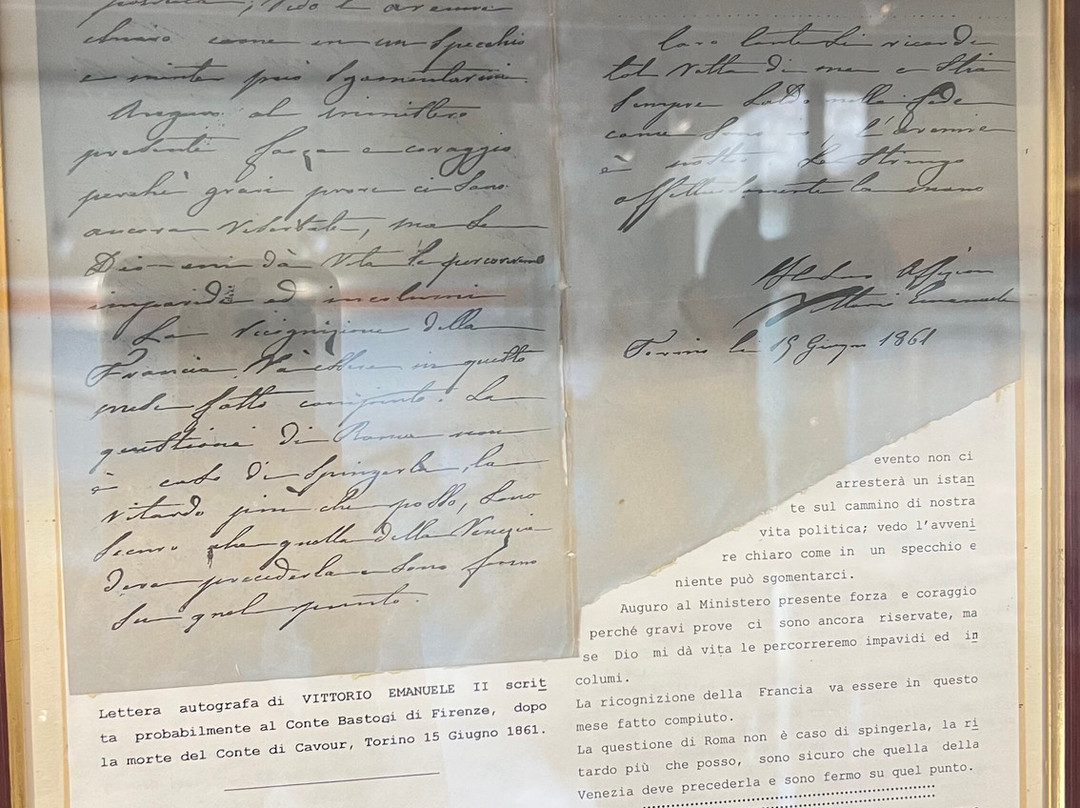 positiva, vedo l'avenire
chiaro come in un specchio
e niente può sgomentarci.
Auguro al ministero
presente forza e coraggio
perchè gravi prove ci sono
ancora riservate, ma se
Dio mi dà vita le percorreremo
impavidi ed incolumi
La ricognizione della
Francia và essere in questo
mese fatto compiuto. La
questione di Roma non
è caso di spingerla, la
ritardo più che posso, sono
securo che quella della Venezia
deve precederla e sono fermo
su quel punto.
Caro conte si ricordi
tal volta di me e stia
sempre saldo nella fede
come sono io, l'avenire
è nostro. Le stringo
affettuosamente la mano
Il suo Affezion
Vittorio Emanuele
Torino li 15 Giugno 1861
evento non ci
arresterà un istan
te sul cammino di nostra
vita politica; vedo l'avveni
re chiaro come in un specchio e
niente può sgomentarci.
Auguro al Ministero presente forza e coraggio
perché gravi prove ci sono ancora riservate, ma
se Dio mi dà vita le percorreremo impavidi ed in
columi.
La ricognizione della Francia va essere in questo
mese fatto compiuto.
La questione di Roma non è caso di spingerla, la ri
tardo più che posso, sono sicuro che quella della
Venezia deve precederla e sono fermo su quel punto.
Lettera autografa di VITTORIO EMANUELE II scrit
ta probabilmente al Conte Bastogi di Firenze, dopo
la morte del Conte di Cavour, Torino 15 Giugno 1861.